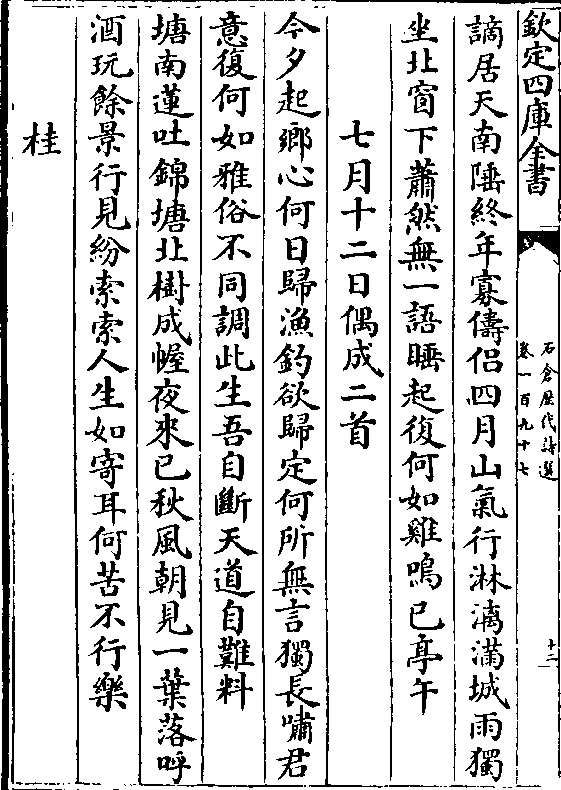 欽定四庫全書
石倉歷代詩選
卷一百九十七
十二
謫居天南陲終年寡儔侶四月山氣行淋漓滿城雨獨
坐北窗下蕭然無一語睡起復何如雞鳴已亭午
七月十二日偶成二首
今夕起鄉心何日歸漁釣欲歸定何所無言獨長嘯君
意復何如雅俗不同調此生吾自斷天道自難料
塘南蓮吐錦塘北樹成幄夜來已秋風朝見一葉落呼
酒玩餘景行見紛索索人生如寄耳何苦不行樂
桂